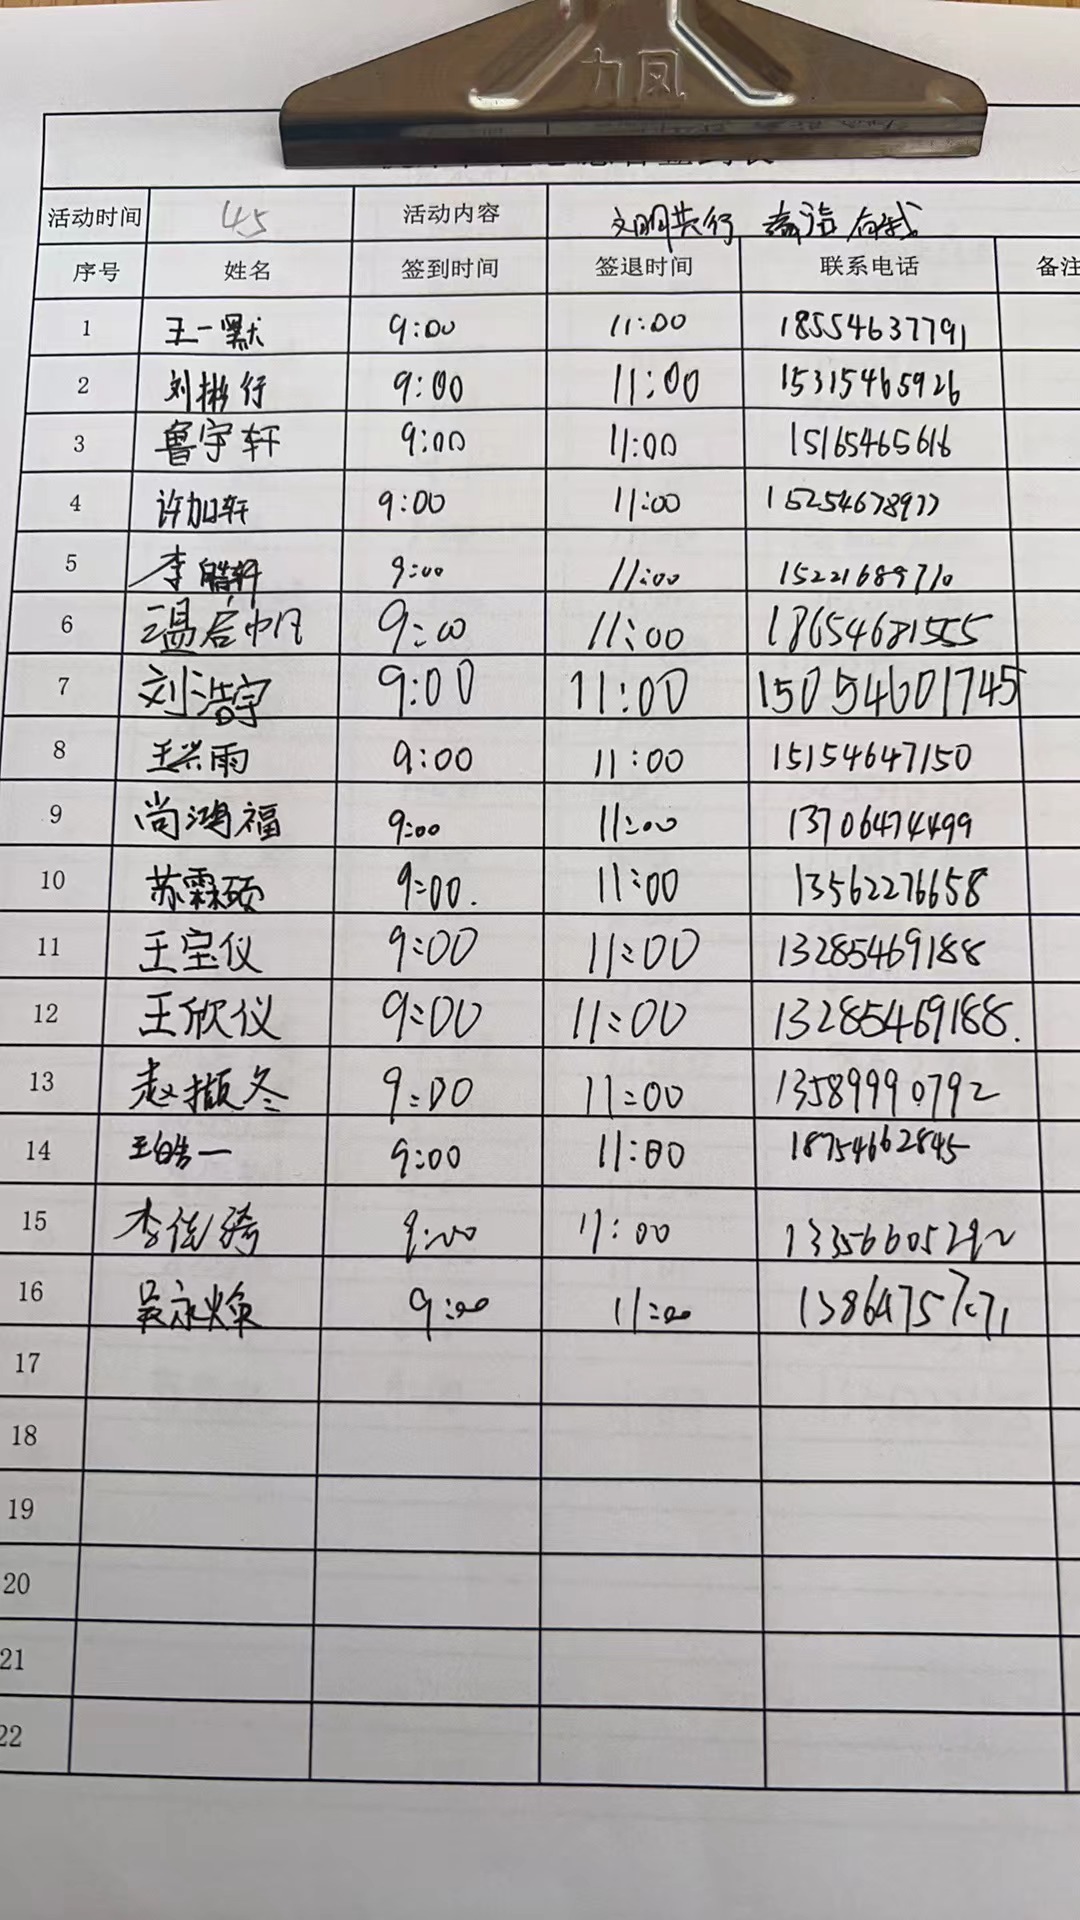 力风
活动时间 45 活动内容 文明共行 清洁有我
序号 姓名 签到时间 签退时间 联系电话 备注
1 王一默 9:00 11:00 18554637791
2 刘彬行 9:00 11:00 15315465926
3 鲁宇轩 9:00 11:00 15165465616
4 许加轩 9:00 11:00 15254678977
5 李皓轩 9:00 11:00 15221689710
6 温启帆 9:00 11:00 18654681555
7 刘浩宇 9:00 11:00 15054601745
8 王兴雨 9:00 11:00 15154647150
9 尚鸿福 9:00 11:00 13706474499
10 苏霖硕 9:00. 11:00 13562276658
11 王宝仪 9:00 11:00 13285469188
12 王欣仪 9:00 11:00 13285469188.
13 赵撷冬 9:00 11:00 13589990792
14 王皓一 9:00 11:00 18754662845
15 李佳骑 9:00 11:00
16 吴永焕 9:00 11:00
17
18
19
20
21
22